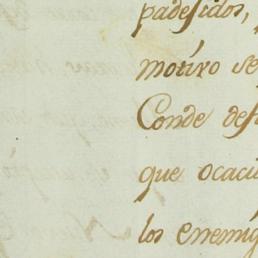 padesidos,
motivo se
Conde de
que ocaci
los enemig